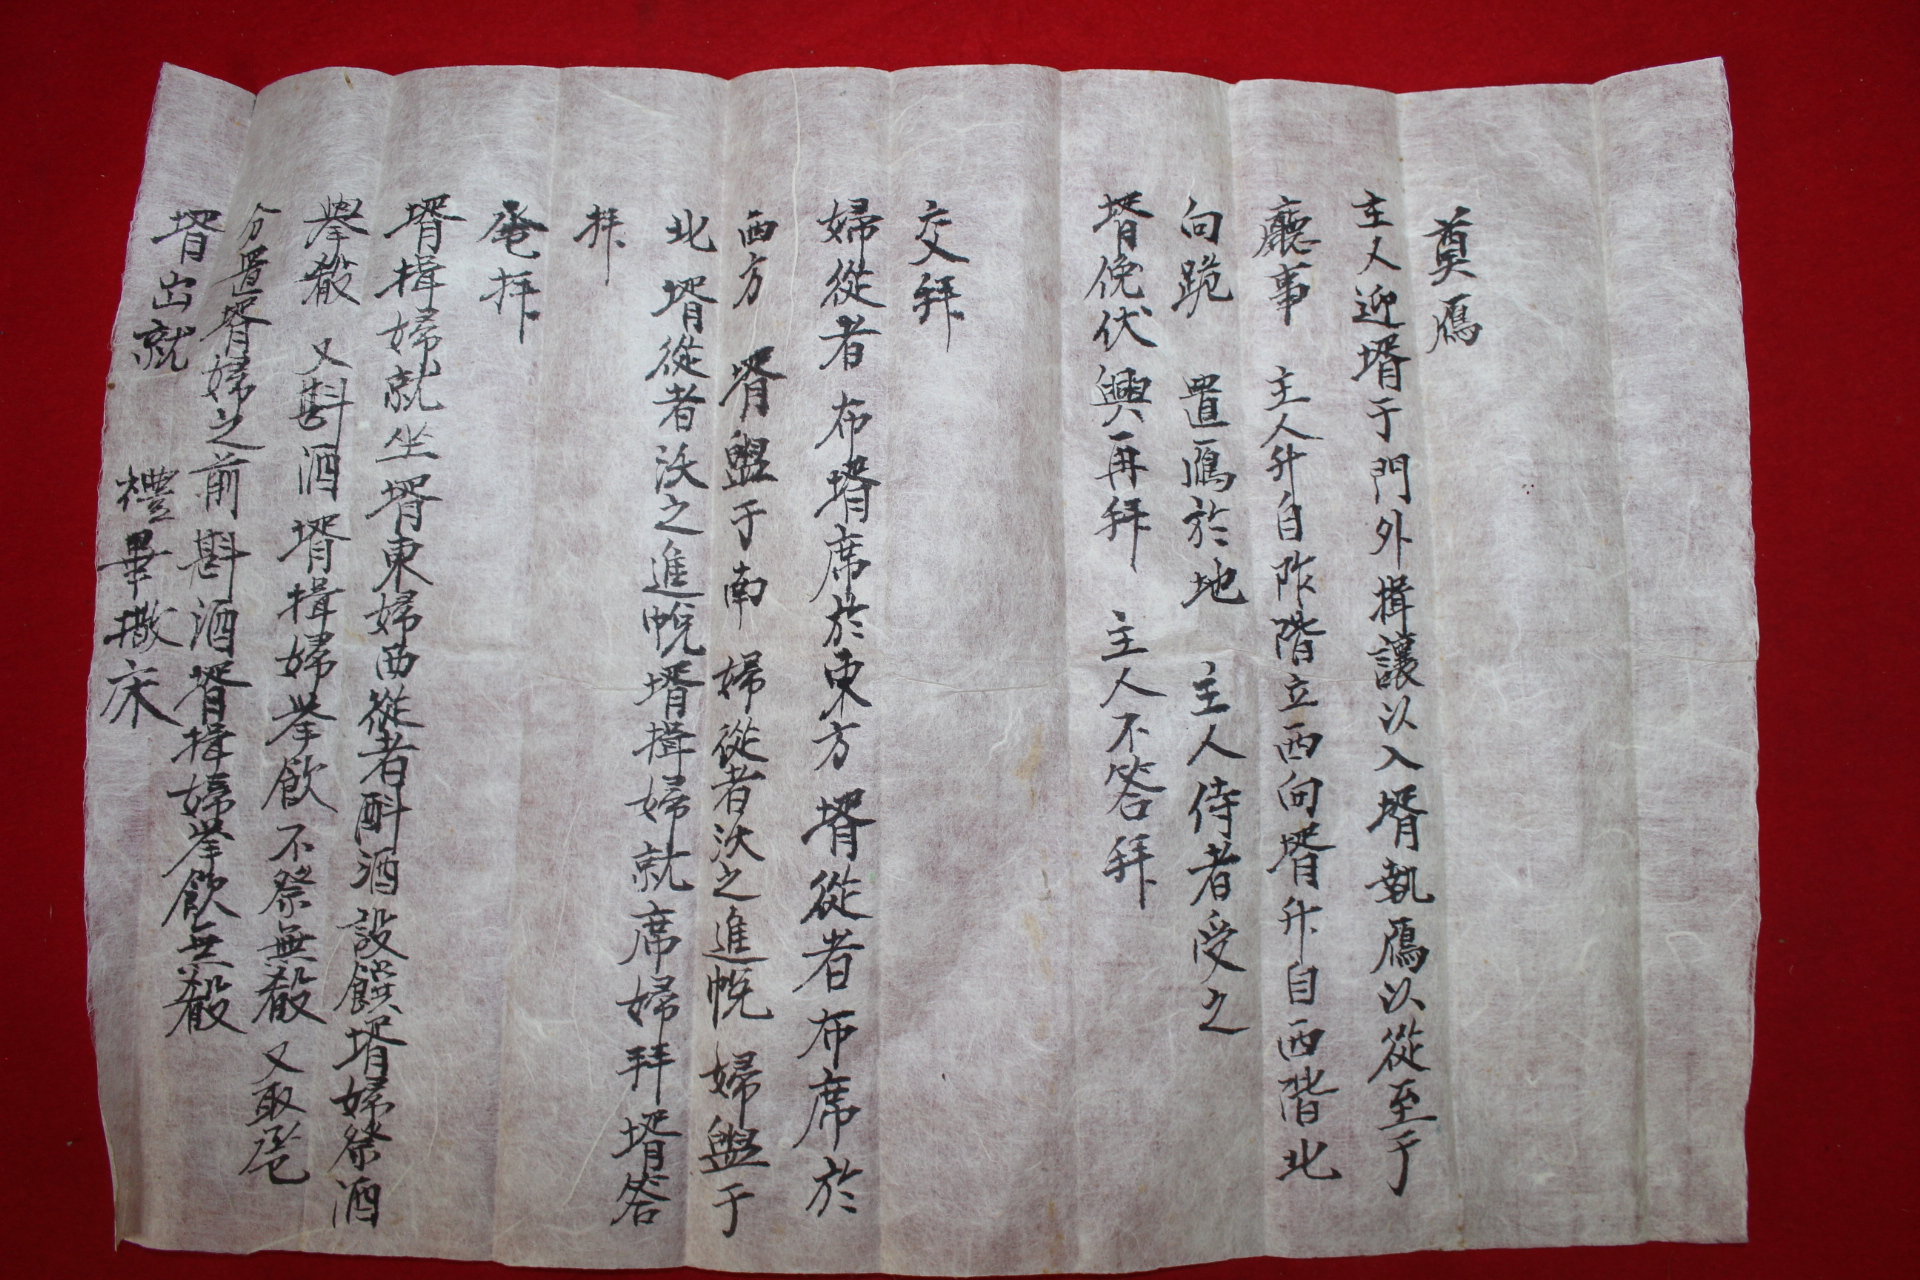 奠鴈
主人迎壻于門外揖讓以入壻執鴈以從至于
廳事 主人升自阼階立西向壻升自西階北
向跪 置鴈於地 主人侍者受之
壻俛伏興再拜 主人不答拜
交拜
婦從者布壻席於東方壻從者布席於
西方 壻盥于南 婦從者沃之進帨 婦盥于
北 壻從者沃之進帨壻揖婦就席婦拜壻答
拜
卺拜
壻揖婦就坐壻東婦西從者斟酒設饌壻婦祭酒
擧殽 又斟酒壻揖婦擧飮不祭無殽 又取卺
分置壻婦之前斟酒壻揖婦擧飮無殽
壻出就 禮畢撤床